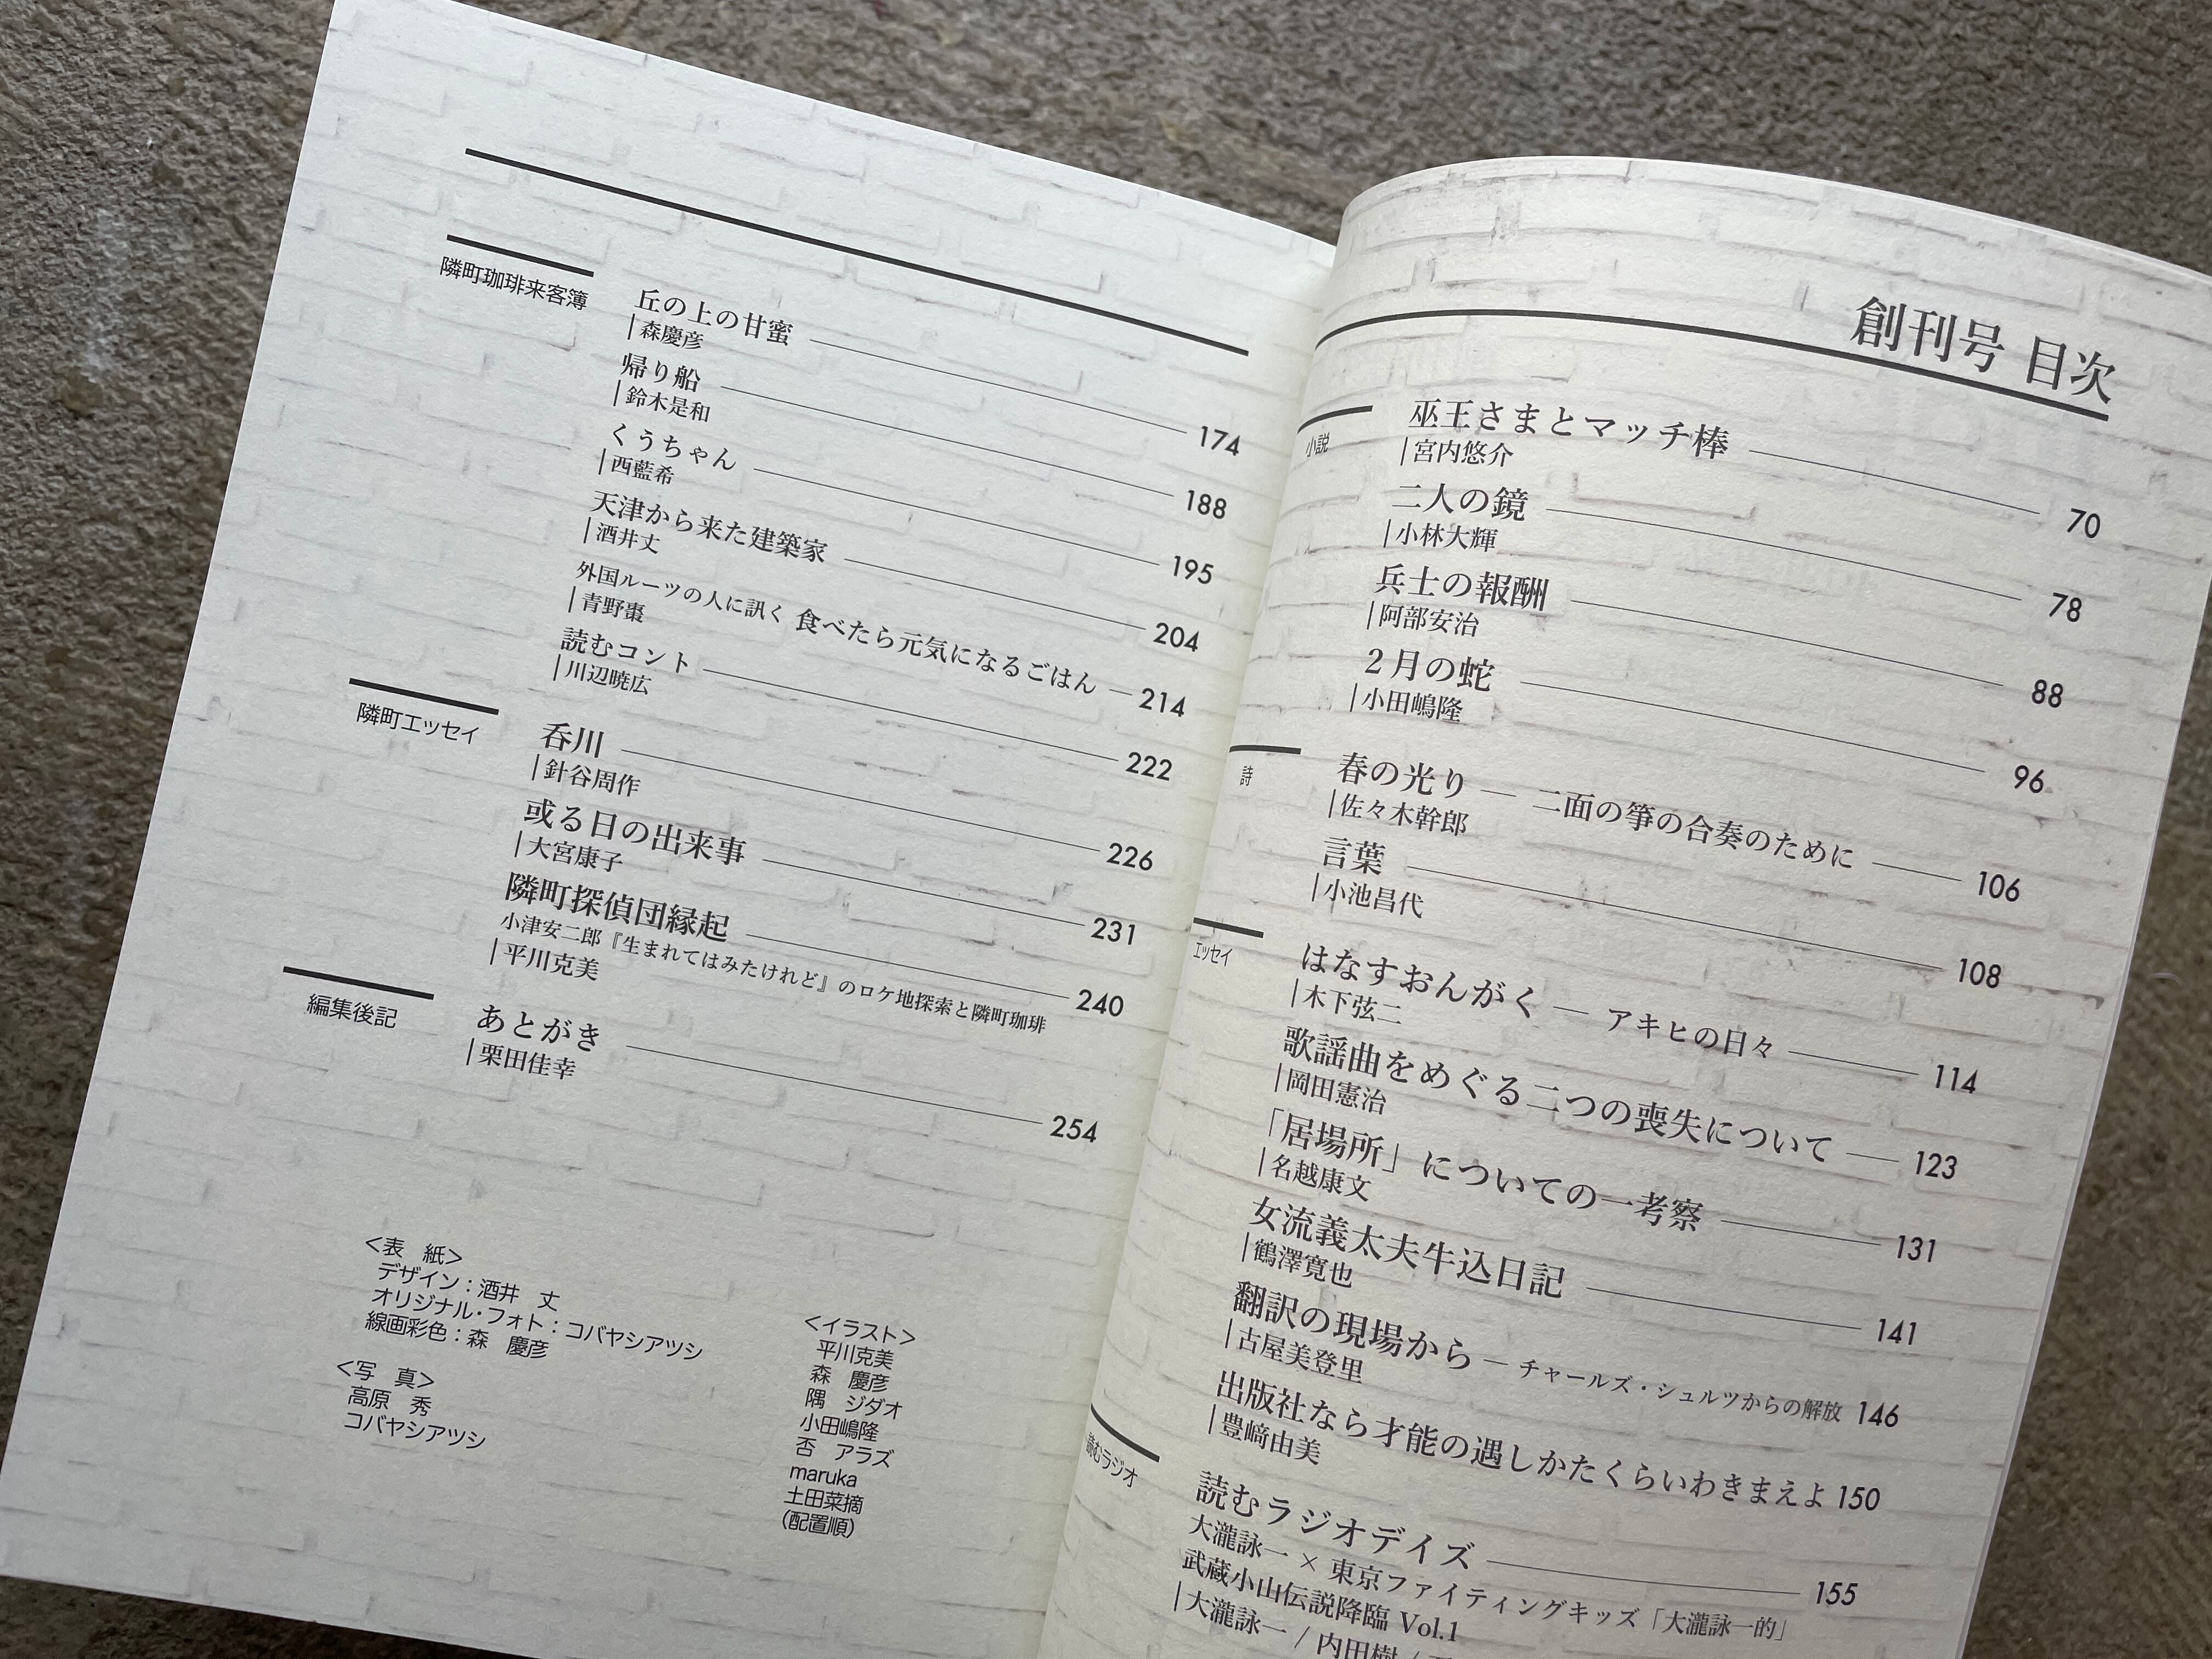 創刊号 目次
小説
巫王さまとマッチ棒 70
宮内悠介
二人の鏡 78
小林大輝
兵士の報酬 88
阿部安治
2月の蛇 96
小田嶋隆
詩
春の光り ― 二面の箏の合奏のために 106
佐々木幹郎
言葉 108
小池昌代
エッセイ
はなすおんがく ― アキヒの日々 114
木下弦二
歌謡曲をめぐる二つの喪失について 123
岡田憲治
「居場所」についての一考察 131
名越康文
女流義太夫牛込日記 141
鶴澤寛也
翻訳の現場から ― チャールズ・シュルツからの解放 146
古屋美登里
出版社なら才能の遇しかたくらいわきまえよ 150
豊﨑由美
読むラジオ
読むラジオデイズ 155
大瀧詠一 × 東京ファイティングキッズ「大瀧詠一的」
武蔵小山伝説降臨 Vol.1
大瀧詠一 / 内田樹 /
隣町珈琲来客簿
丘の上の甘蜜 174
森慶彦
帰り船 188
鈴木是和
くうちゃん 195
西藍希
天津から来た建築家 204
酒井丈
外国ルーツの人に訊く 食べたら元気になるごはん 214
青野棗
読むコント 222
川辺暁広
隣町エッセイ
呑川 226
針谷周作
或る日の出来事 231
大宮康子
隣町探偵団縁起 240
小津安二郎『生まれてはみたけれど』のロケ地探索と隣町珈琲
平川克美
編集後記
あとがき 254
栗田佳幸
<表　紙>
デザイン：酒井　丈
オリジナル・フォト：コバヤシアツシ
線画彩色：森　慶彦
<写　真>
高原　秀
コバヤシアツシ
<イラスト>
平川克美
森　慶彦
隅　ジダオ
小田嶋隆
否　アラズ
maruka
土田菜摘
(配置順)